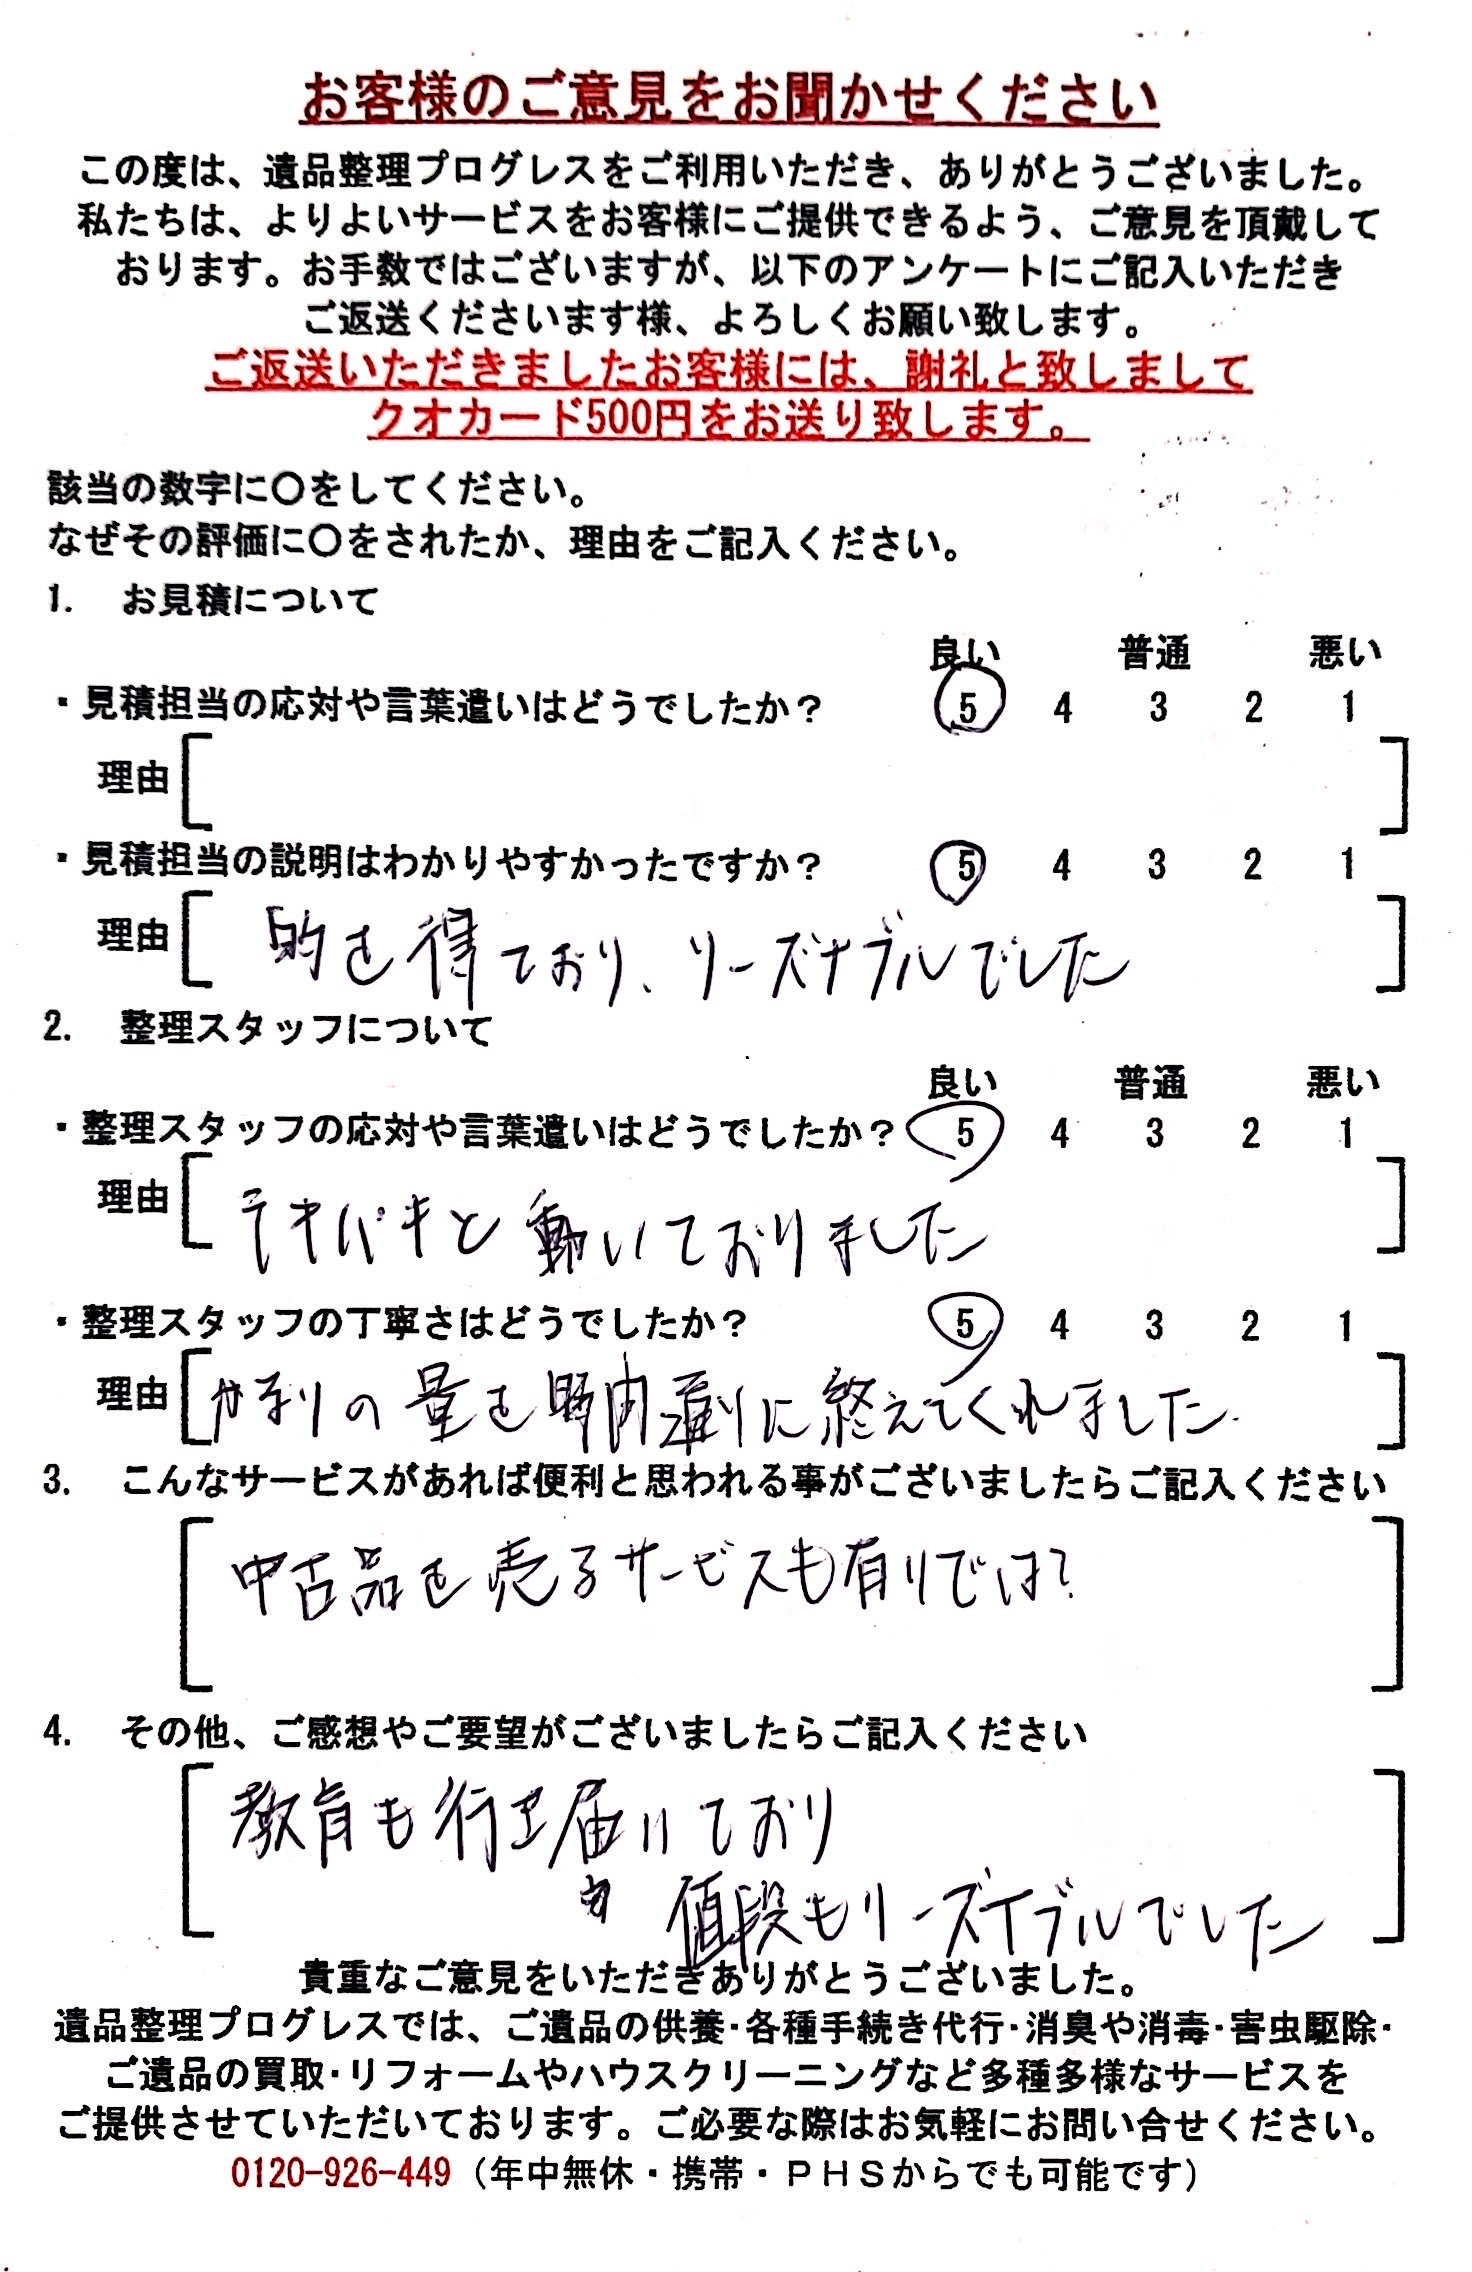 お客様のご意見をお聞かせください
この度は、遺品整理プログレスをご利用いただき、ありがとうございました。
私たちは、よりよいサービスをお客様にご提供できるよう、ご意見を頂戴して
おります。お手数ではございますが、以下のアンケートにご記入いただき
ご返送くださいます様、よろしくお願い致します。
ご返送いただきましたお客様には、謝礼と致しまして
クオカード500円をお送り致します。
該当の数字に〇をしてください。
なぜその評価に〇をされたか、理由をご記入ください。
1. お見積について
良い 普通 悪い
・見積担当の応対や言葉遣いはどうでしたか? 5 4 3 2 1
理由
・見積担当の説明はわかりやすかったですか? 5 4 3 2 1
理由 的を得ており、リーズナブルでした
2. 整理スタッフについて
良い 普通 悪い
・整理スタッフの応対や言葉遣いはどうでしたか? 5 4 3 2 1
理由 テキパキと動いておりました
・整理スタッフの丁寧さはどうでしたか? 5 4 3 2 1
理由 かなりの量を時間通りに終えてくれました.
3. こんなサービスがあれば便利と思われる事がございましたらご記入ください
中古品を売るサービスも有りでは?
4. その他、ご感想やご要望がございましたらご記入ください
教育も行き届いており
値段もリーズナブルでした
貴重なご意見をいただきありがとうございました。
遺品整理プログレスでは、ご遺品の供養・各種手続き代行・消臭や消毒・害虫駆除・
ご遺品の買取・リフォームやハウスクリーニングなど多種多様なサービスを
ご提供させていただいております。ご必要な際はお気軽にお問い合せください。
0120-926-449（年中無休・携帯・ＰＨＳからでも可能です）